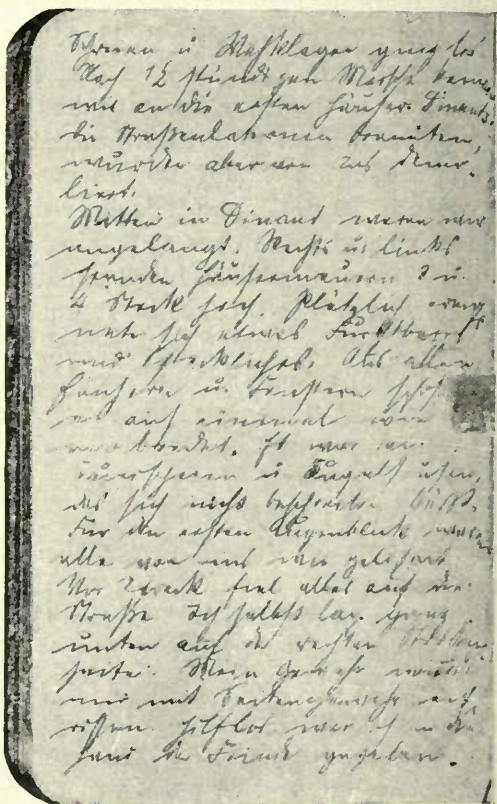 Schreien u Wehklagen ging los
Nach 1½ stündigem Marsche kamen
wir an die ersten Häuser Dinants.
die Straßenlaternen brannten,
wurden aber von uns demo-
liert.
Mitten in Dinant waren wir
angelangt. Rechts u. links
Häusermauern 3 u.
4 Stock hoch. Plötzlich ereig
nete sich etwas Furchtbares
und Schreckliches. Aus allen
Häusern u. Fenstern schoß
es auf einmal wie
verabredet. Es war ein
u Kugel
das sich nicht beschreiben läßt.
Für den ersten Augenblick waren
alle von uns wie gelähmt
Vor Schreck fiel alles auf die
Straße Ich selbst lag ganz
unten auf der rechten
seite. Mein Gewehr wurde
mir mit Seitengewehr ent
rissen. Hilflos war ich in die
Hand der Feinde gegeben.